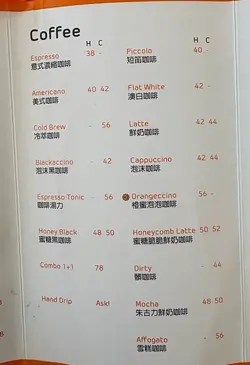 Coffee
H C
Espresso 38 -
意式濃縮咖啡
Americano 40 42
美式咖啡
Cold Brew - 56
冷萃咖啡
Blackaccino - 42
泡沫黑咖啡
Espresso Tonic - 56
咖啡湯力
Honey Black 48 50
蜜糖黑咖啡
Combo 1+1 78
Hand Drip Ask!
H C
Piccolo 40 -
短笛咖啡
Flat White 42 -
澳白咖啡
Latte 42 44
鮮奶咖啡
Cappuccino 42 44
泡沫咖啡
Orangeccino 56 -
橙蜜泡泡咖啡
Honeycomb Latte 50 52
蜜糖脆脆鮮奶咖啡
Dirty - 44
髒咖啡
Mocha 48 50
朱古力鮮奶咖啡
Affogato - 56
雪糕咖啡